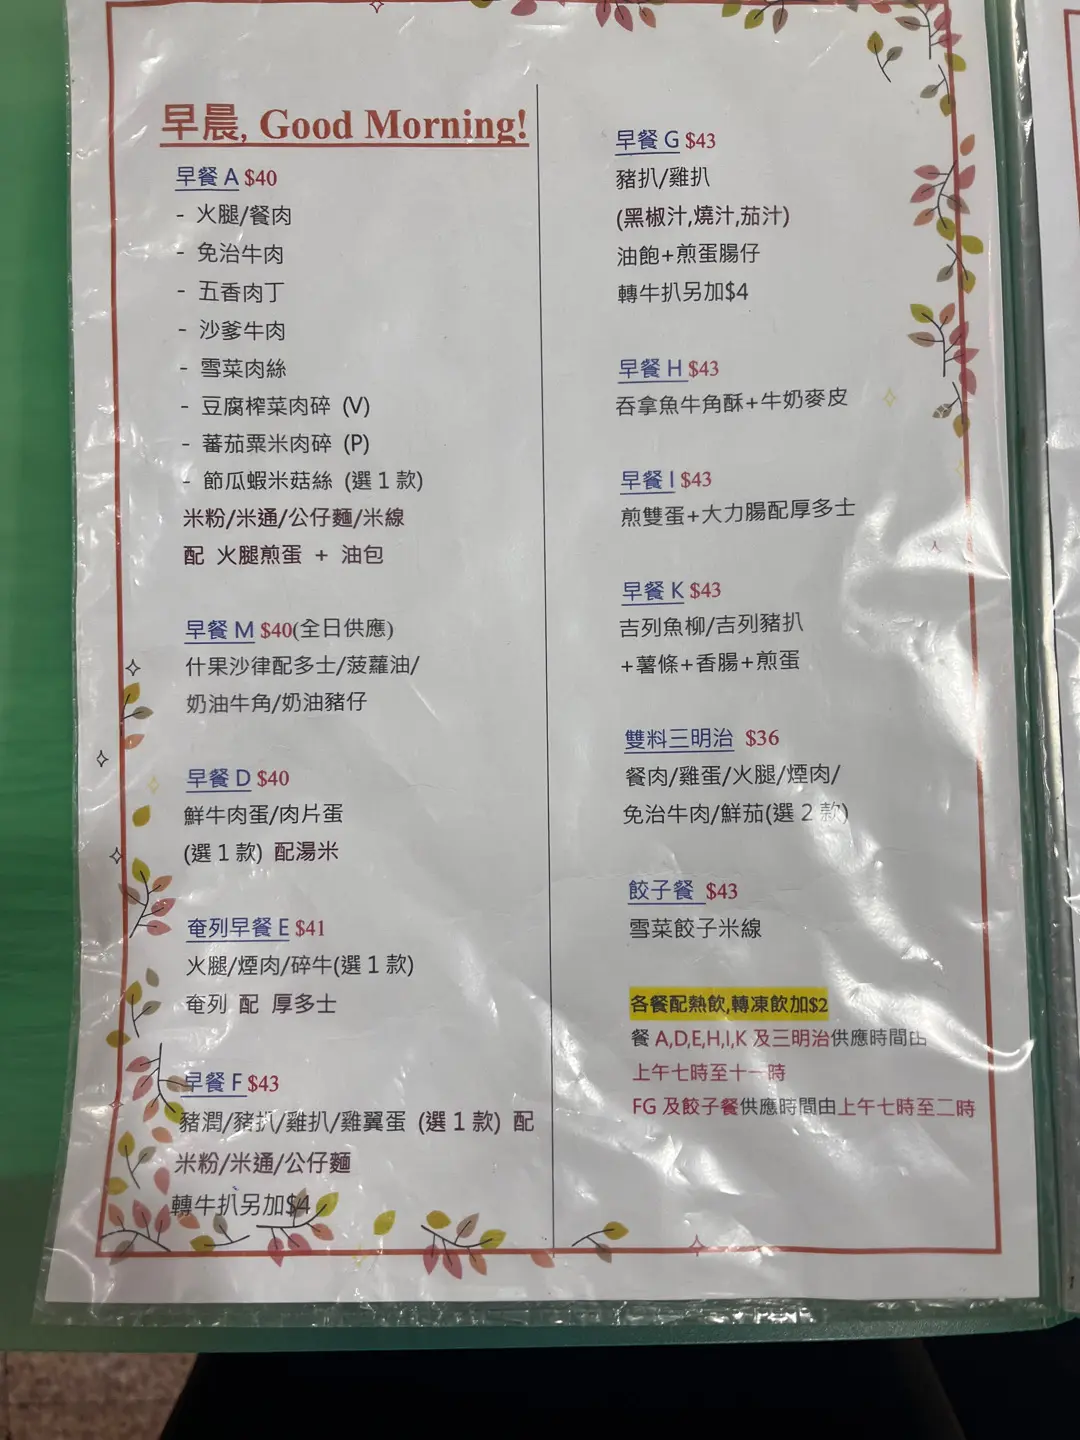 早晨, Good Morning!
早餐 A $40
- 火腿/餐肉
- 免治牛肉
- 五香肉丁
- 沙爹牛肉
- 雪菜肉絲
- 豆腐榨菜肉碎 (V)
- 蕃茄粟米肉碎 (P)
- 節瓜蝦米菇絲 (選 1 款)
米粉/米通/公仔麵/米線
配 火腿煎蛋 + 油包
早餐 M $40(全日供應)
什果沙律配多士/菠蘿油/
奶油牛角/奶油豬仔
早餐 D $40
鮮牛肉蛋/肉片蛋
(選 1 款) 配湯米
奄列早餐 E $41
火腿/煙肉/碎牛(選 1 款)
奄列 配 厚多士
早餐 F $43
豬潤/豬扒/雞扒/雞翼蛋 (選 1 款) 配
米粉/米通/公仔麵
轉牛扒另加$4
早餐 G $43
豬扒/雞扒
(黑椒汁,燒汁,茄汁)
油飽+煎蛋腸仔
轉牛扒另加$4
早餐 H $43
吞拿魚牛角酥+牛奶麥皮
早餐 I $43
煎雙蛋+大力腸配厚多士
早餐 K $43
吉列魚柳/吉列豬扒
+薯條+香腸+煎蛋
雙料三明治 $36
餐肉/雞蛋/火腿/煙肉/
免治牛肉/鮮茄(選 2 款)
餃子餐 $43
雪菜餃子米線
各餐配熱飲,轉凍飲加$2
餐 A,D,E,H,I,K 及三明治供應時間由
上午七時至十一時
FG 及餃子餐供應時間由上午七時至二時